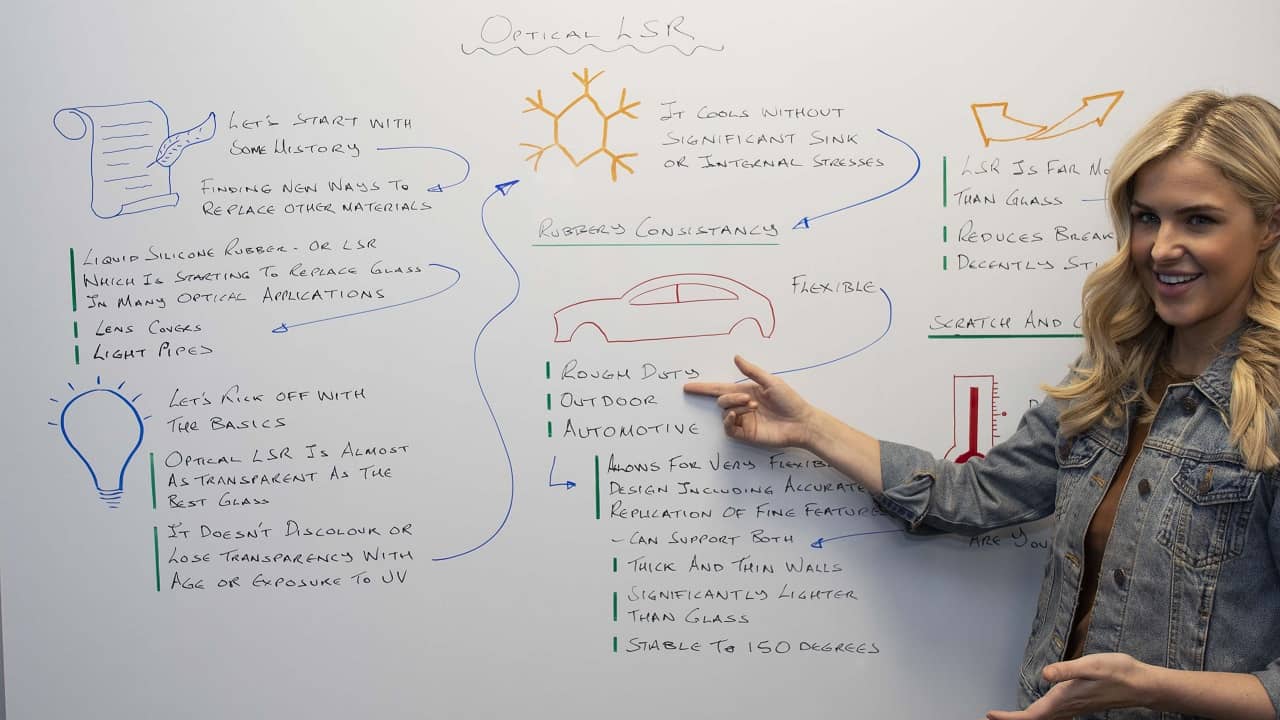 OPTICAL LSR
LET'S START WITH
SOME HISTORY
FINDING NEW WAYS TO
REPLACE OTHER MATERIALS
LIQUID SILICONE RUBBER - OR LSR
WHICH IS STARTING TO REPLACE GLASS
IN MANY OPTICAL APPLICATIONS
LENS COVERS
LIGHT PIPES
LET'S KICK OFF WITH
THE BASICS
OPTICAL LSR IS ALMOST
AS TRANSPARENT AS THE
BEST GLASS
IT DOESN'T DISCOLOUR OR
LOSE TRANSPARENCY WITH
AGE OR EXPOSURE TO UV
IT COOLS WITHOUT
SIGNIFICANT SINK
OR INTERNAL STRESSES
RUBBERY CONSISTANCY
FLEXIBLE
ROUGH DUTY
OUTDOOR
AUTOMOTIVE
ALLOWS FOR VERY
DESIGN INCLUDING ACCURATE
REPLICATION OF FINE FEATURES
- CAN SUPPORT BOTH
THICK AND THIN WALLS
SIGNIFICANTLY LIGHTER
THAN GLASS
STABLE TO 150 DEGREES
LSR IS FAR
THAN GLASS
REDUCES
DECENTLY
SCRATCH AND
ARE YOU